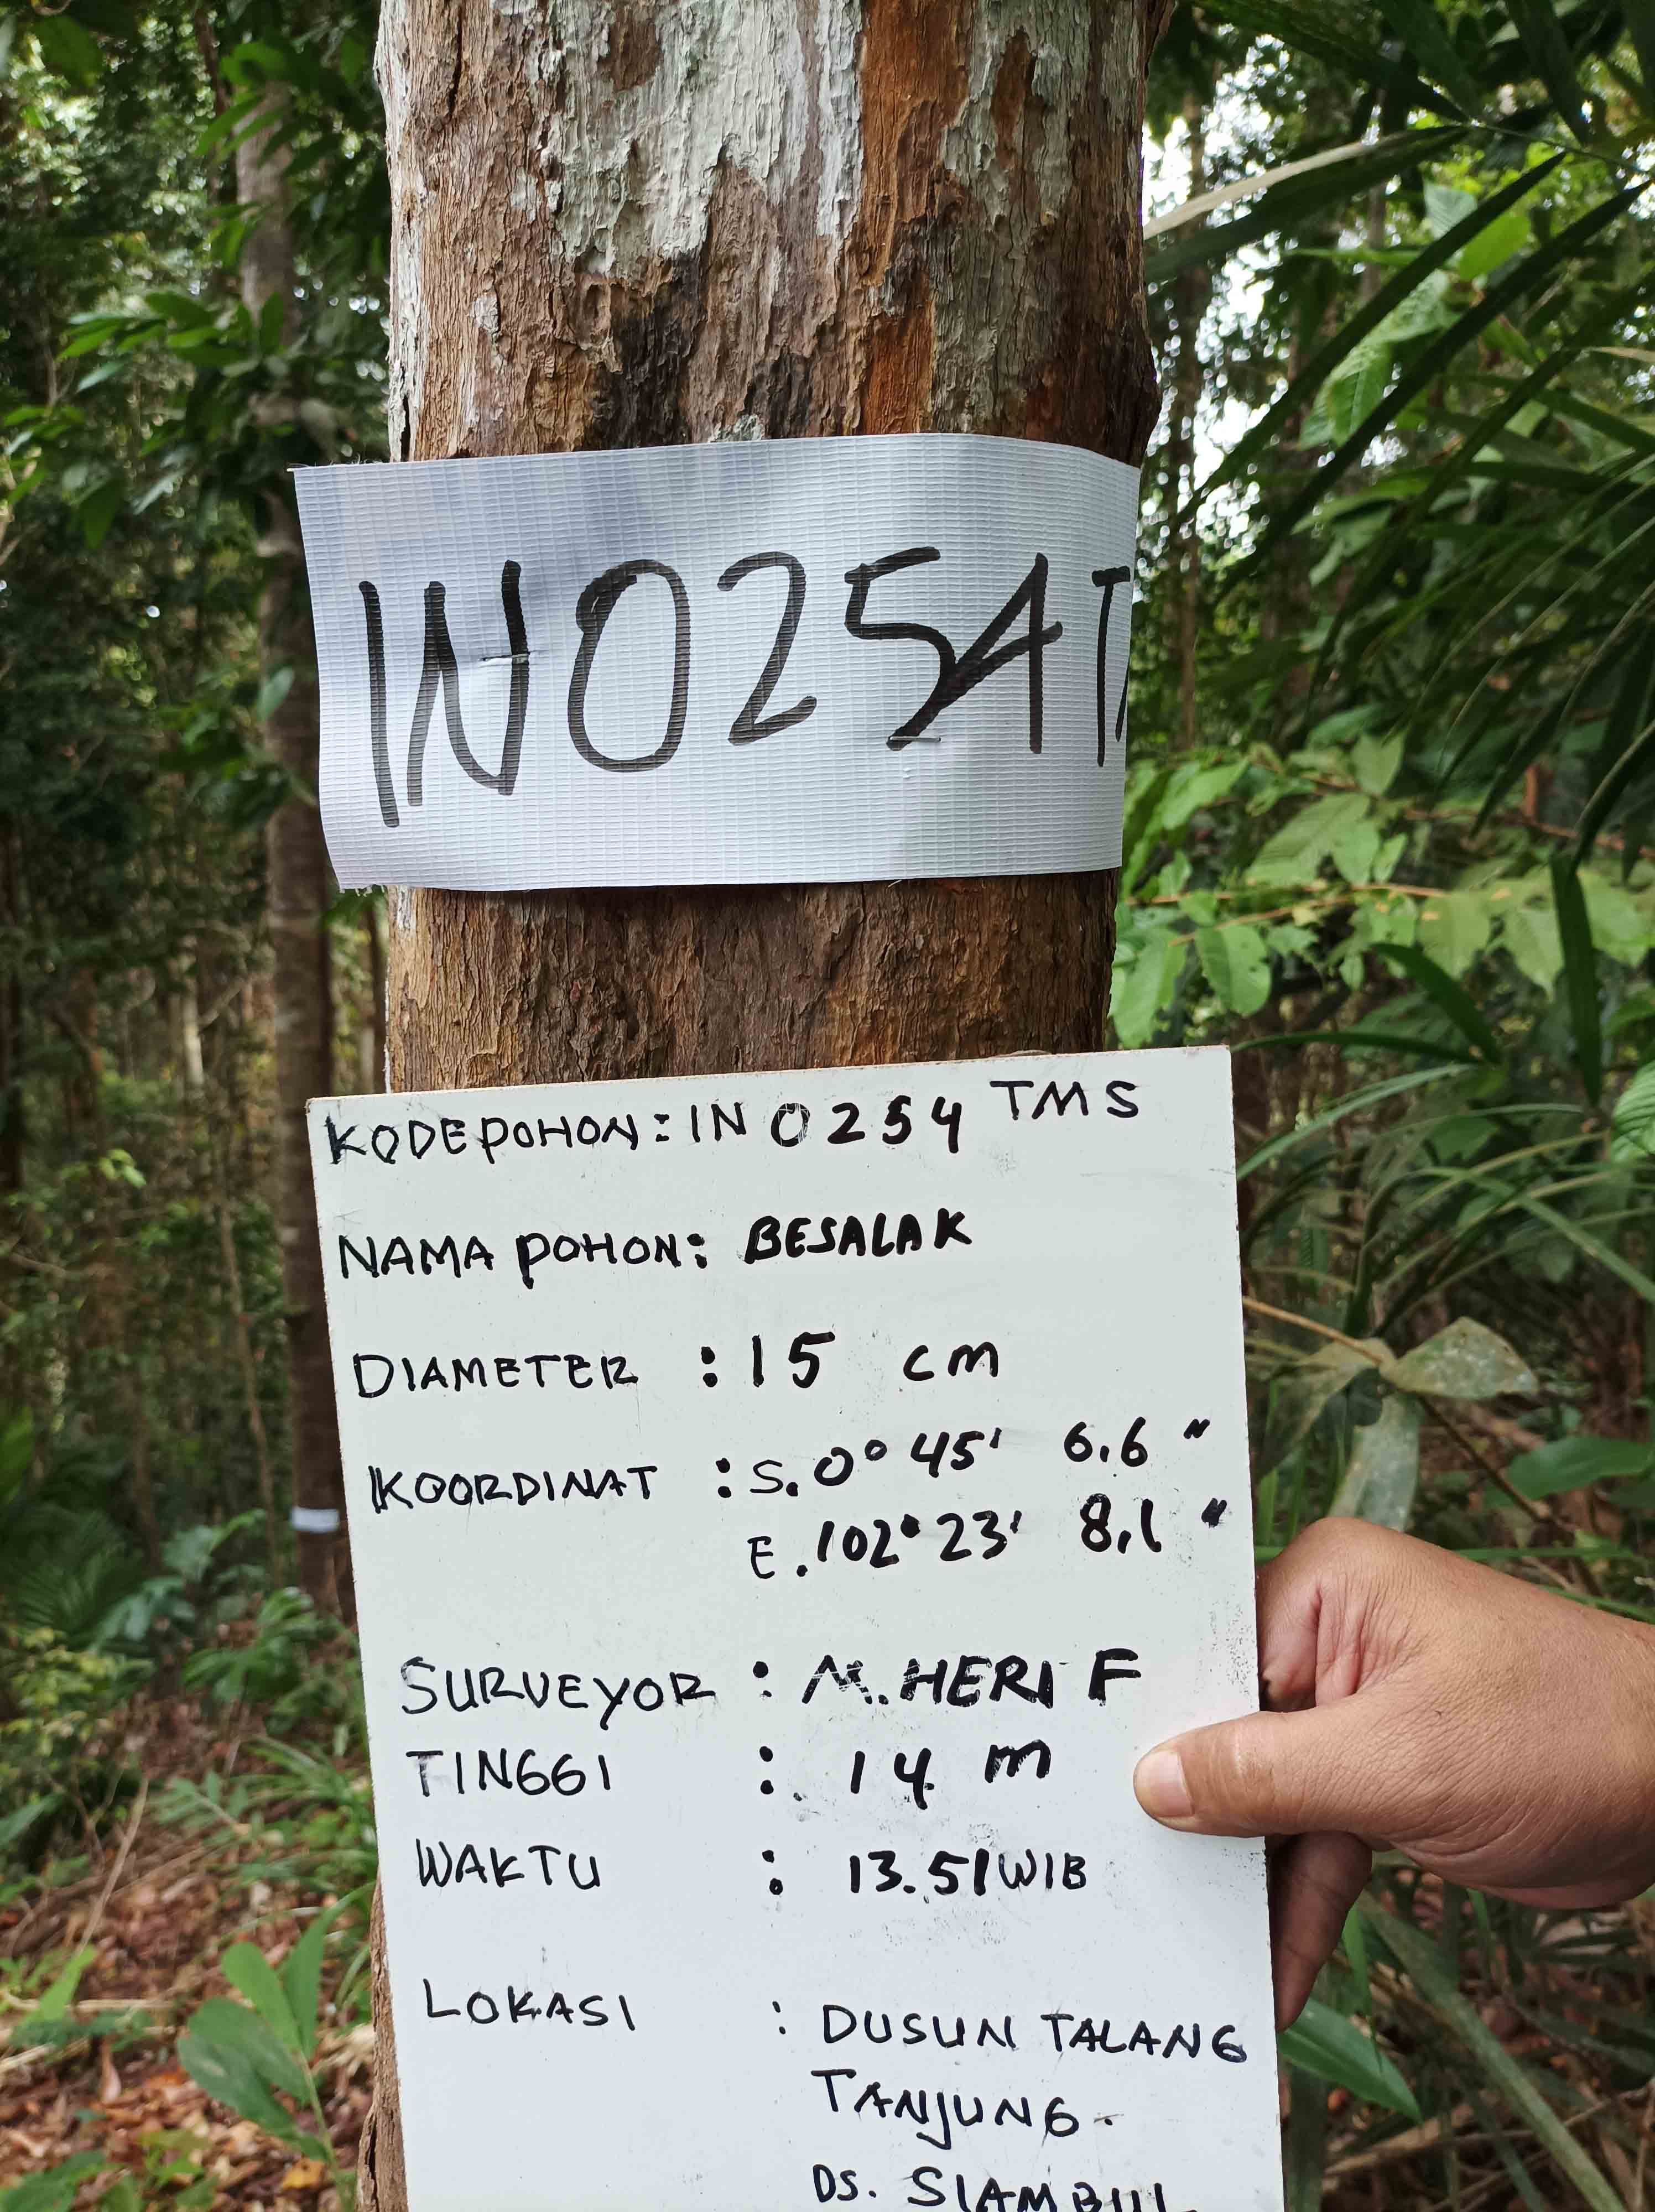 IN0254T
KODE POHON : IN 0254 TMS
NAMA POHON : BESALAK
DIAMETER : 15 cm
KOORDINAT : S. 0° 45' 6.6 "
E. 102° 23' 8,1 "
SURVEYOR : M. HERI F
TINGGI : 14 m
WAKTU : 13.51 WIB
LOKASI : DUSUN TALANG
TANJUNG.
DS. SIAMBUL